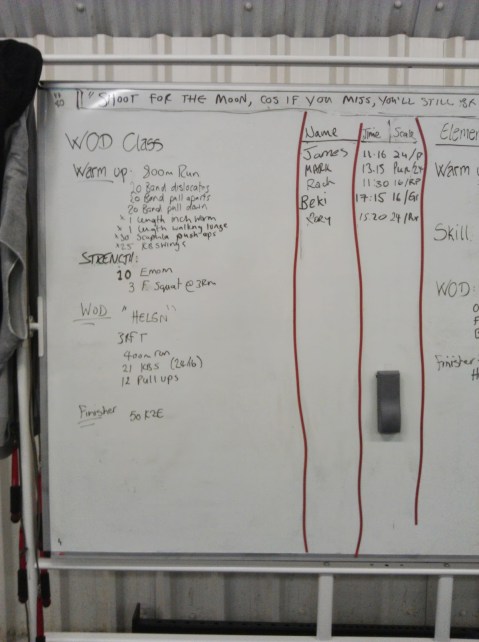 "SHOOT FOR THE MOON, COS IF YOU MISS, YOU'LL STILL
WOD Class
Warm up: 800m Run
20 Band dislocates
20 Band pull aparts
20 Band pull down
1 Length inch worm
1 Length walking lunge
30 Scapula push ups
25 KB Swings
STRENGTH:
10 Emom
3 F. Squat @ 3Rm
WOD "HELEN"
3RFT
400m run
21 KBS
12 Pull ups
Finisher 50 K2E
Name Time Scale
James 11.16 24/
MARK 13.15
11:30 16/RP
Beki 17:15 16/
Rory 15.20 24/
Elemen
Warm u
Skill
WOD:
Finisher